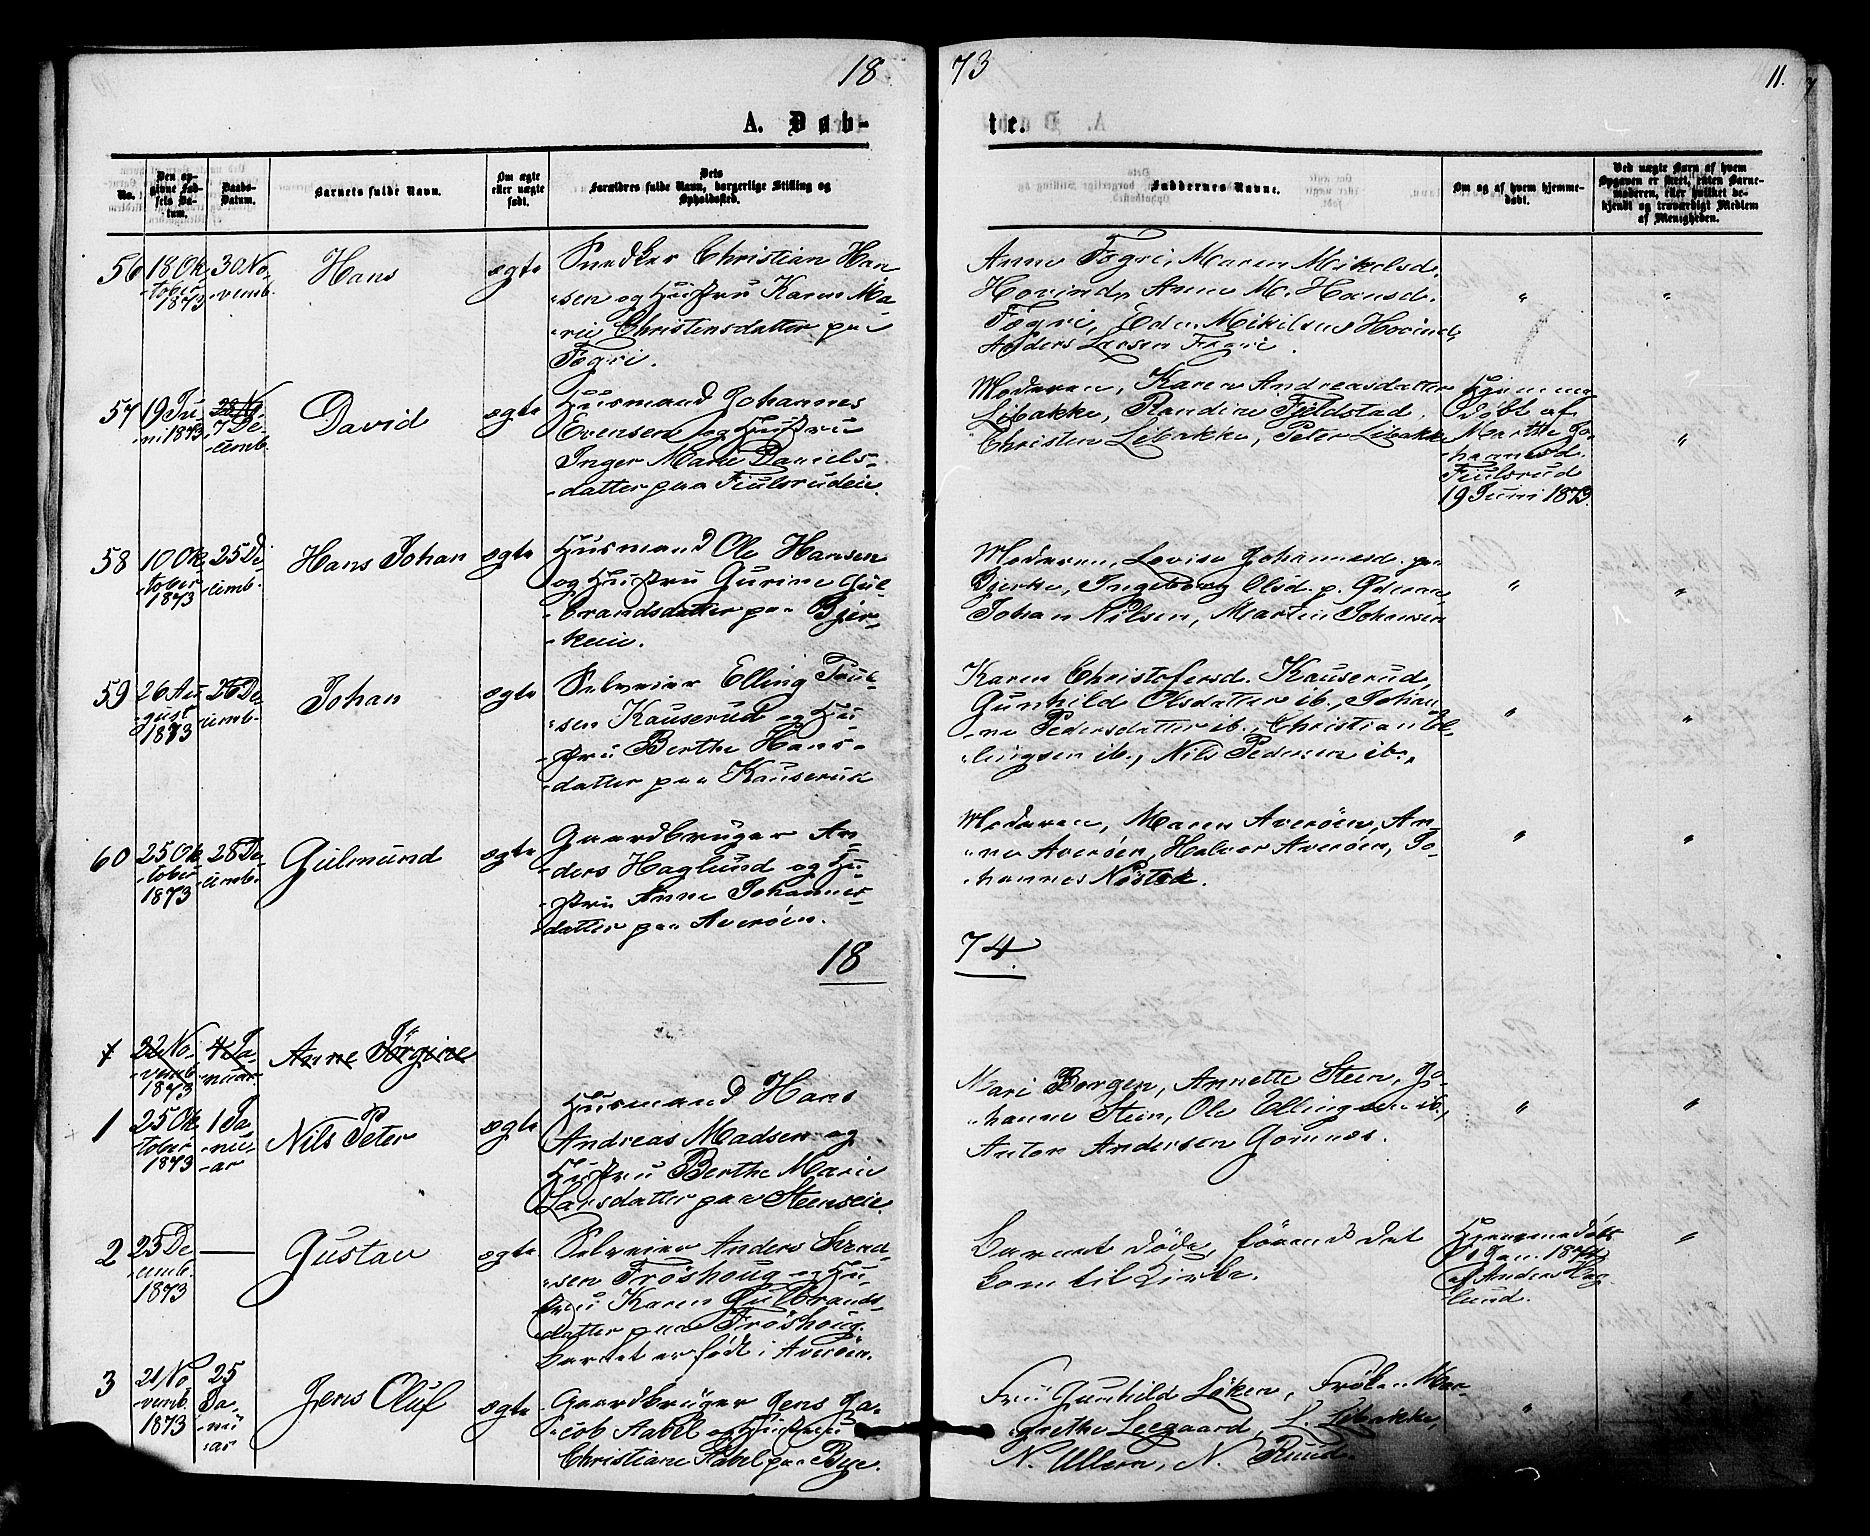 18 73
11.
A. Døb-
te.
No.
Den op-
givne Fød-
sels Da-
tum.
Daabs-
Datum.
Barnets fulde Navn.
Om ægte
eller uægte
født.
Dets
Forældres fulde Navn, borgerlige Stilling og
Opholdssted.
Faddernes Navne.
Om og af hvem hjemme-
døbt.
Ved uægte Barn af hvem
Opgaven er skeet, enten Barne-
moderen, eller hvilket be-
kjendt og troværdigt Medlem
af Menigheden.
56
18 Ok-
-tober
1873
30 No-
-vemb.
Hans
ægte
Snedker Christian Han-
-sen og Hustru Karen Ma-
-rie Christensdatter paa
Fogri.
Anne Fogri, Maren Mikelsd.
Hovind, Anne M. Hansd.
Fogri, Edv. Mikelsen Hovind,
Anders Larsen Fogri.
"
"
57
19 Ju-
ni 1873
28 No-
7 De-
-cemb.
David
ægte
Husmand Johannes
Evensen og Hustru
Inger Marie Daniels-
-datter paa Fiulsrudeie.
Moderen, Karen Andreasdatter
Libakke, Randine Fjeldstad.
Christen Libakke, Peter Libakke
Hjemme-
døbt af
Marthe Jo-
-hannesd.
Fiulsrud
19 Juni 1873.
"
58
10 Ok-
-tober
1873
25 De-
-cemb.
Hans Johan
ægte
Husmand Ole Hansen
og Hustru Gurine Gul-
-brandsdatter paa Bjer-
-keeie.
Moderen, Lovise Johannesd. paa
Bjerke, Ingeborg Olsd. p.
Johan Nilsen, Martin Johansen
"
"
59
26 Au-
-gust
1873
26 De-
-cemb.
Johan
ægte
Selveier Elling Trul-
-sen Kauserud og Hu-
-stru Berthe Hans-
-datter paa Kauserud
Karen Christofersd. Kauserud,
Gunhild Olsdatter ib., Johan-
-ne Pedersdatter ib., Christian El-
-lingsen ib., Nils Pedersen ib.,
"
"
60
25 Ok-
-tober
1873
28 De-
-cemb.
Gulmund
ægte
Gaardbruger An-
-ders Haglund og Hu-
-stru Anne Johannes-
-datter paa Averøen.
Moderen, Maren Averøen, An-
-ne Averøen, Halvor Averøen, Jo-
-hannes Nøstad.
"
"
18 74.
1
22 No-
-vemb.
1873
4 Ja-
-nuar
Anne Jørgine
1
25 Ok-
tober
1873
1 Ja-
-nu-
-ar
Nils Peter
ægte
Husmand Hans
Andreas Madsen og
Hustru Berthe Marie
Larsdatter paa Steenseie.
Mari Borgen, Annette Steen, Jo-
-hanne Steen, Ole Ellingsen ib.,
Anton Andersen Gomnes.
"
"
2
25 De-
-cemb.
1873
—
Gustav
ægte
Selveier Anders Svend-
-sen Frøshoug og Hu-
-stru Karen Gulbrands-
-datter paa Frøshoug.
Barnet er født i Averøen.
Barnet døde, førend det
kom til Kirke.
Hjemmedøbt
1 Jan. 1874
af Anders Hag-
-lund.
"
3
21 No-
-vemb.
1873
25
Ja-
-nu-
-ar
Jens Oluf
ægte
Gaardbruger Jens Ja-
-cob Aabel og Hustru
Christiane Aabel paa Bye.
Fru Gunhild Løken, Frøken Mar-
-grethe Leegaard, L. Libakke,
N. Ullern, N. Ruud.
"
"